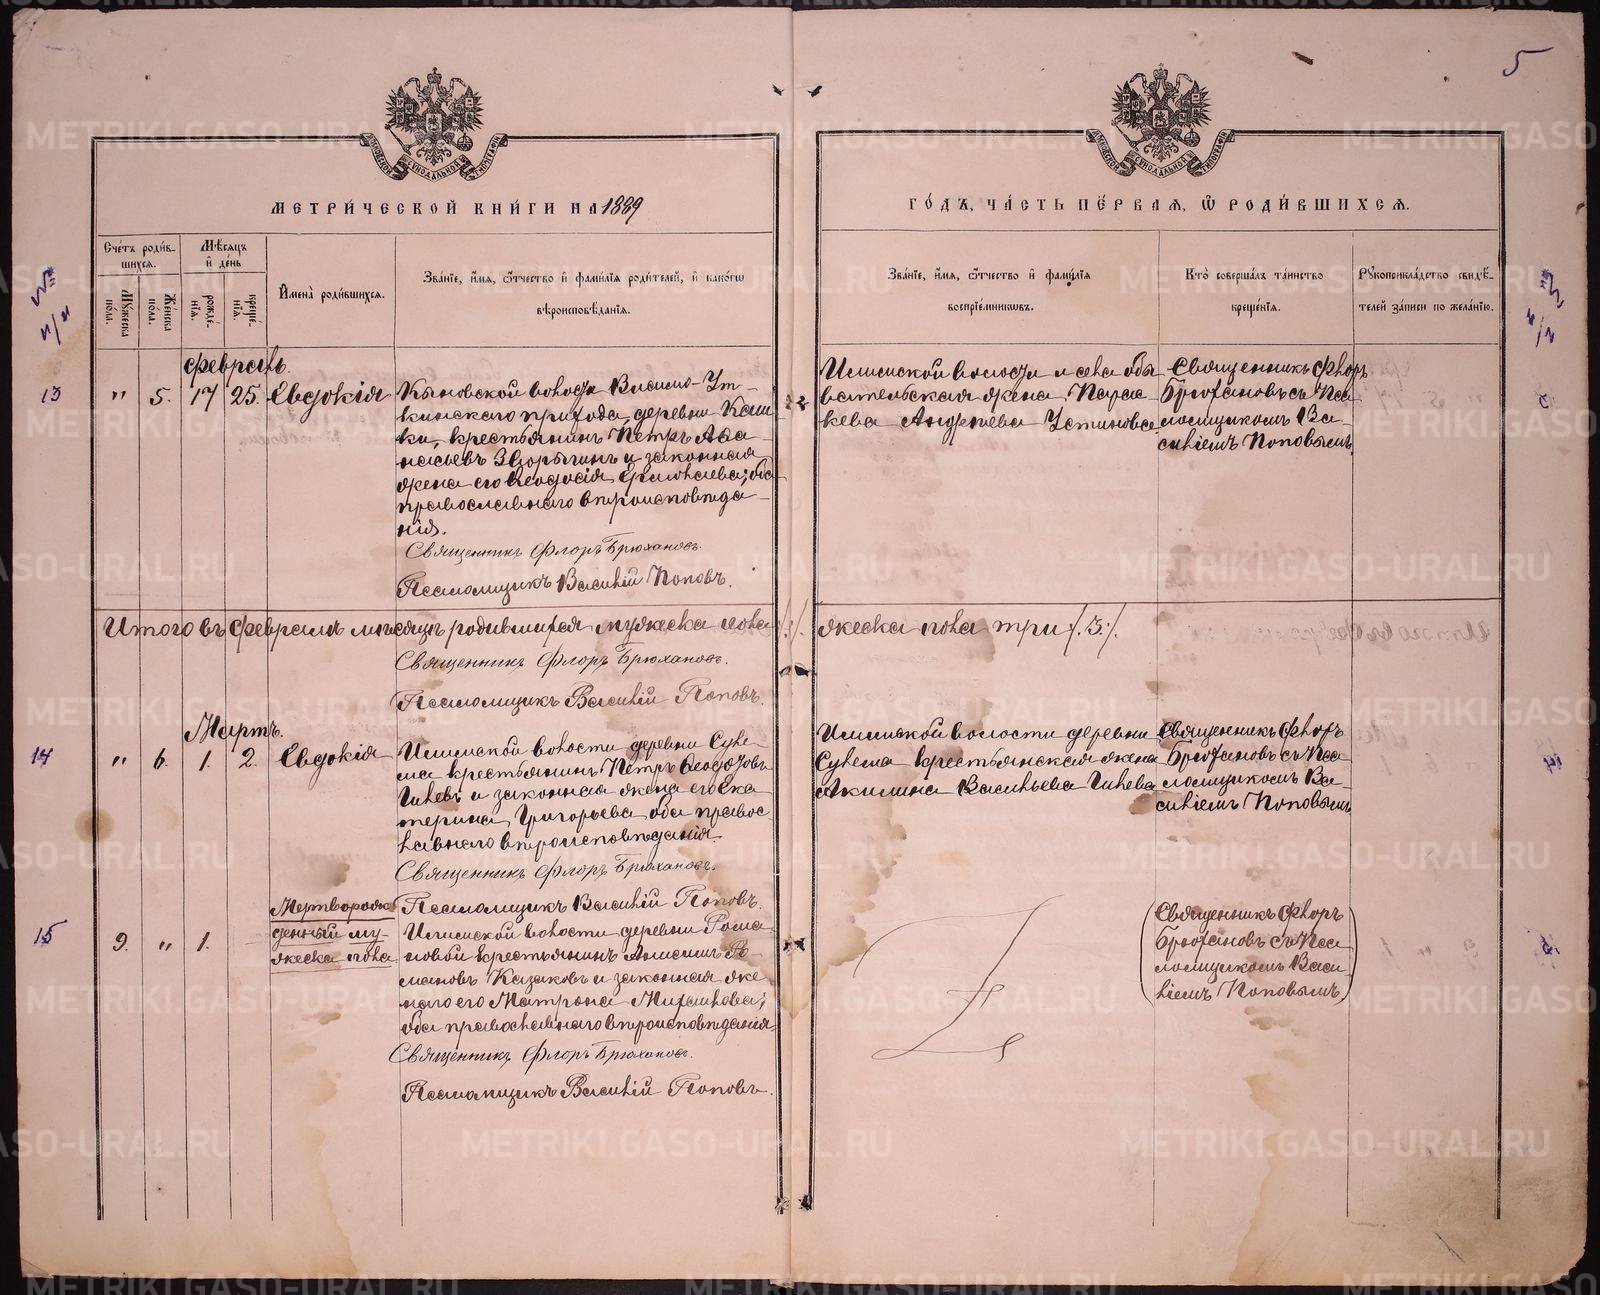 5
МОСКОВСКОЙ СѴНОДАЛЬНОЙ ТИПОГРАФІИ
МОСКОВСКОЙ СѴНОДАЛЬНОЙ ТИПОГРАФІИ
МЕТРИ́ЧЕСКОЙ КНИ́ГИ НА 1889
ГО́ДЪ, ЧА́СТЬ ПЕ́РВАЯ, Ѡ РОДИ́ВШИХСѦ.
Сче́тъ роди́в-
шихсѧ.
Мꙋжеска по́ла.
Же́нска по́ла.
Мѣ́сяцъ
и҆ де́нь
рожде́нїѧ.
креще́нїѧ.
И҆мена̀ роди́вшихсѧ.
Зва́нїе, и҆́мѧ, ѻ҆́тчество и҆ фами́лїѧ роди́телей, и҆ како́гѡ
вѣроисповѣ́данїѧ.
Зва́нїе, и҆́мѧ, ѻ҆́тчество и҆ фами́лїѧ
воспрїе́мникѡвъ.
Кто̀ соверша́лъ та́инство
креще́нїѧ.
Рꙋкоприкла́дство свидѣ́-
телей за́писи по жела́нїю.
№
п/п
Февраль.
13 " 5. 17 25. Евдокія
Кыновской волости Висимо-Ут-
кинскаго прихода, деревни Каш
ки, крестьянинъ Петръ Аѳа
насьевъ Зворыгинъ и законная
жена его Ѳеодосія
православнаго вѣроисповѣда
нія.
Священникъ Флоръ Брюхановъ.
Псаломщикъ Василій Поповъ.
Илимской волости и села обы
вательская жена, Парас
кева Андреева Устинова
Священникъ Флоръ
Брюхановъ съ Пса
ломщикомъ Ва
силіемъ Поповымъ.
Итого въ Февралѣ мѣсяцѣ родившихся мужеска пола
женска пола три /.3./.
Священникъ Флоръ Брюхановъ.
Псаломщикъ Василій Поповъ.
Мартъ.
14 " 6. 1. 2. Евдокія
Илимской волости деревни Суле
ма крестьянинъ Петръ Ѳеодоровъ
и законная жена его Ека
терина Григорьева, оба правос
лавнаго вѣроисповѣданія.
Священникъ Флоръ Брюхановъ.
Псаломщикъ Василій Поповъ.
Илимской волости деревни
Сулема крестьянская жена
Акилина Васильева
Священникъ Флоръ
Брюхановъ съ Пса
ломщикомъ Ва
силіемъ Поповымъ
15 9. " 1.
Мертворож
денный му
жеска пола
Илимской волости деревни Рома
новой крестьянинъ Анисимъ Ро
мановъ Казаковъ и законная же
на его Матрона Михаилова;
оба православнаго вѣроисповѣданія.
Священникъ Флоръ Брюхановъ.
Псаломщикъ Василій Поповъ.
(Священникъ Флоръ
Брюхановъ съ Пса
ломщикомъ Васи
ліемъ Поповымъ)
METRIKI.GASO-URAL.RU